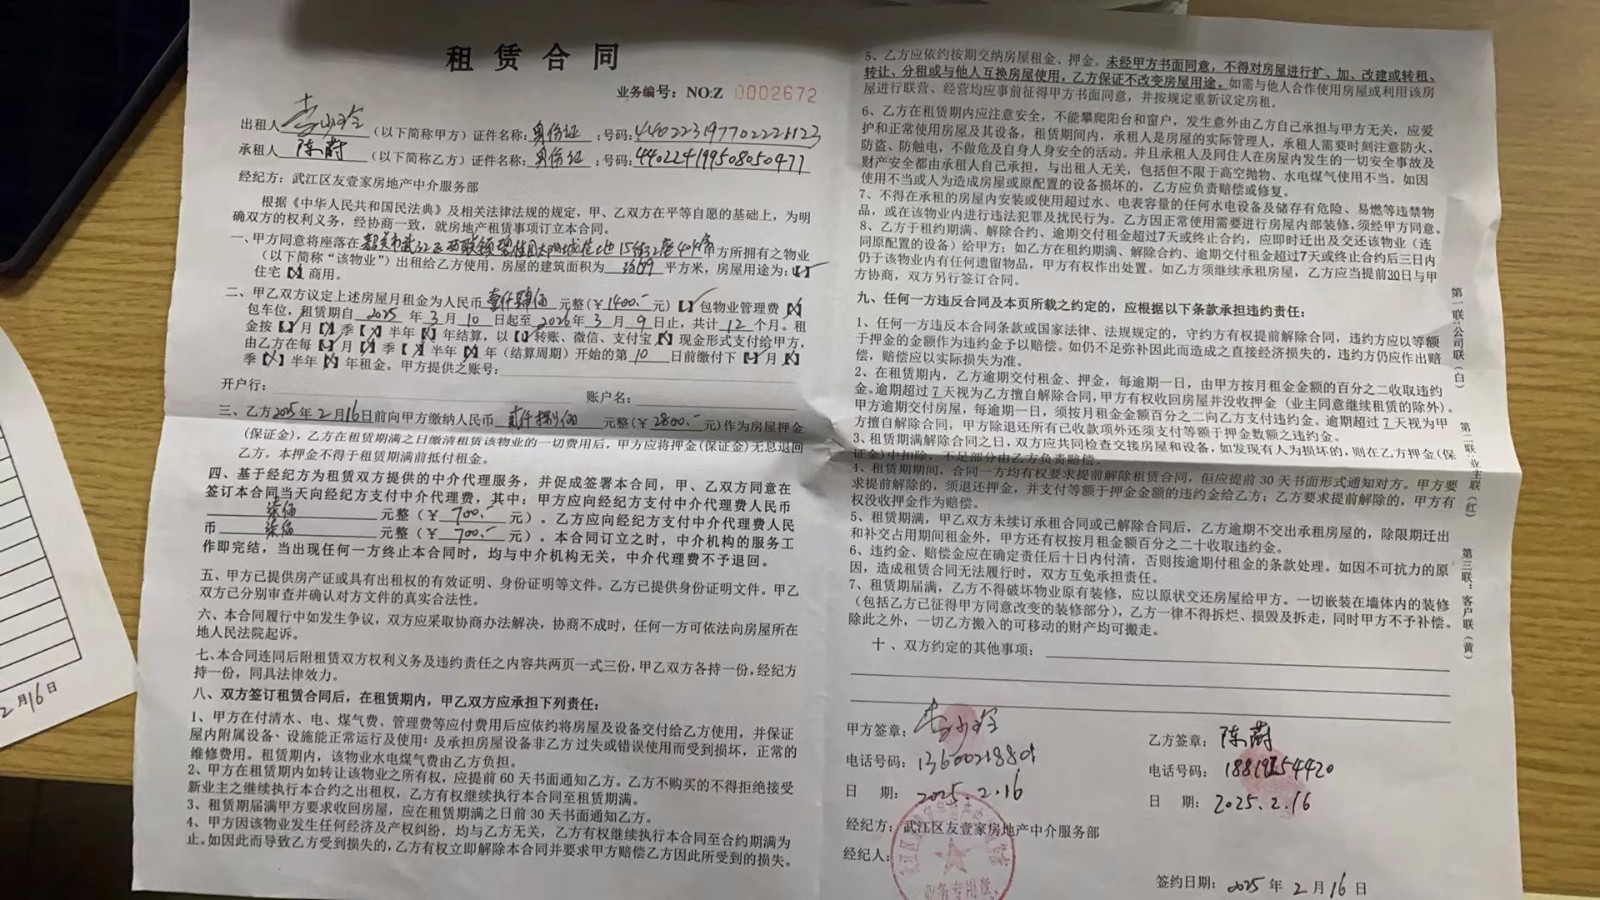 租赁合同
业务编号：NO:Z 0002672
出租人 （以下简称甲方）证件名称：身份证 ：号码：
承租人 陈蔚 （以下简称乙方）证件名称：身份证 ：号码：440224199508050477
经纪方：武江区友壹家房地产中介服务部
根据《中华人民共和国民法典》及相关法律法规的规定，甲、乙双方在平等自愿的基础上，为明
确双方的权利义务，经协商一致，就房地产租赁事项订立本合同。
一、甲方同意将座落在 韶关市武江区西联镇碧桂园太阳城 15街 座 404 房 方所拥有之物业
（以下简称“该物业”）出租给乙方使用。房屋的建筑面积为 平方米，房屋用途为：【】
住宅【】商用。
二、甲乙双方议定上述房屋月租金为人民币 壹仟肆佰 元整（¥ 1400.- 元）【】包物业管理费【】
包车位，租赁期自 2025 年 3 月 10 日起至 2026 年 3 月 9 日止，共计 12 个月。租
金按【】月【】季【】半年【】年结算，以【】转账、微信、支付宝【】现金形式支付给甲方，
由乙方在每【】月【】季【】半年【】年（结算周期）开始的第 10 日前缴付下【】月【】
季【】半年【】年租金。甲方提供之账号：
开户行： 账户名：
三、乙方 2025 年 2 月 16 日前向甲方缴纳人民币 贰仟捌佰 元整（¥ 2800.- 元）作为房屋押金
（保证金），乙方在租赁期满之日缴清租赁该物业的一切费用后，甲方应将押金（保证金）无息退回
乙方。本押金不得于租赁期满前抵付租金。
四、基于经纪方为租赁双方提供的中介代理服务，并促成签署本合同，甲、乙双方同意在
签订本合同当天向经纪方支付中介代理费，其中：甲方应向经纪方支付中介代理费人民币
柒佰 元整（¥ 700.- 元）。乙方应向经纪方支付中介代理费人民
币 柒佰 元整（¥ 700.- 元）。本合同订立之时，中介机构的服务工
作即完结，当出现任何一方终止本合同时，均与中介机构无关，中介代理费不予退回。
五、甲方已提供房产证或具有出租权的有效证明、身份证明等文件。乙方已提供身份证明文件。甲乙
双方已分别审查并确认对方文件的真实合法性。
六、本合同履行中如发生争议，双方应采取协商办法解决，协商不成时，任何一方可依法向房屋所在
地人民法院起诉。
七、本合同连同后附租赁双方权利义务及违约责任之内容共两页一式三份，甲乙双方各持一份，经纪方
持一份，同具法律效力。
八、双方签订租赁合同后，在租赁期内，甲乙双方应承担下列责任：
1、甲方在付清水、电、煤气费、管理费等应付费用后应依约将房屋及设备交付给乙方使用，并保证
屋内附属设备、设施能正常运行及使用；及承担房屋设备非乙方过失或错误使用而受到损坏，正常的
维修费用。租赁期内，该物业水电煤气费由乙方负担。
2、甲方在租赁期内如转让该物业之所有权，应提前60天书面通知乙方。乙方不购买的不得拒绝接受
新业主之继续执行本合约之出租权，乙方有权继续执行本合同至租赁期满。
3、租赁期届满甲方要求收回房屋，应在租赁期满之日前30天书面通知乙方。
4、甲方因该物业发生任何经济及产权纠纷，均与乙方无关，乙方有权继续执行本合同至合约期满为
止。如因此而导致乙方受到损失的，乙方有权立即解除本合同并要求甲方赔偿乙方因此所受到的损失。
5、乙方应依约按期交纳房屋租金、押金。未经甲方书面同意，不得对房屋进行扩、加、改建或转租、
转让、分租或与他人互换房屋使用，乙方保证不改变房屋用途。如需与他人合作使用房屋或利用该房
屋进行联营、经营均应事前征得甲方书面同意，并按规定重新议定房租。
6、乙方在租赁期内应注意安全，不能攀爬阳台和窗户，发生意外由乙方自己承担与甲方无关，应爱
护和正常使用房屋及其设备，租赁期间内，承租人是房屋的实际管理人，承租人需要时刻注意防火、
防盗、防触电，不做危及自身人身安全的活动。并且承租人及同住人在房屋内发生的一切安全事故及
财产安全都由承租人自己承担，与出租人无关，包括但不限于高空抛物、水电煤气使用不当。如因
使用不当或人为造成房屋或原配置的设备损坏的，乙方应负责赔偿或修复。
7、不得在承租的房屋内安装或使用超过水、电表容量的任何水电设备及储存有危险、易燃等违禁物
品，或在该物业内进行违法犯罪及扰民行为。乙方因正常使用需要进行房屋内部装修，须经甲方同意。
8、乙方于租赁期满、解除合约、逾期交付租金超过7天或终止合约，应即时迁出及交还该物业（连
同原配置的设备）给甲方；如乙方在租赁期满、解除合约、逾期交付租金超过7天或终止合约后三日内
仍于该物业内有任何遗留物品，甲方有权作出处置。如乙方须继续承租房屋，乙方应当提前30日与甲
方协商，双方另行签订合同。
九、任何一方违反合同及本页所载之约定的，应根据以下条款承担违约责任：
1、任何一方违反本合同条款或国家法律、法规规定的，守约方有权提前解除合同，违约方应以等额
于押金的金额作为违约金予以赔偿。如仍不足弥补因此而造成之直接经济损失的，违约方仍应作出赔
偿，赔偿应以实际损失为准。
2、在租赁期内，乙方逾期交付租金、押金，每逾期一日，由甲方按月租金金额的百分之二收取违约
金。逾期超过7天视为乙方擅自解除合同，甲方有权收回房屋并没收押金（业主同意继续租赁的除外）。
甲方逾期交付房屋，每逾期一日，须按月租金金额百分之二向乙方支付违约金。逾期超过7天视为甲
方擅自解除合同，甲方除退还所有已收款项外还须支付等额于押金数额之违约金。
3、租赁期满解除合同之日，双方应共同检查交接房屋和设备，如发现有人为损坏的，则在乙方押金（保
证金）中扣除，不足部分由乙方负责赔偿。
4、租赁期期间，合同一方均有权要求提前解除租赁合同，但应提前30天书面形式通知对方。甲方要
求提前解除的，须退还押金，并支付等额于押金金额的违约金给乙方；乙方要求提前解除的，甲方有
权没收押金作为赔偿。
5、租赁期满，甲乙双方未续订承租合同或已解除合同后，乙方逾期不交出承租房屋的，除限期迁出
和补交占用期间租金外，甲方还有权按月租金额百分之二十收取违约金。
6、违约金、赔偿金应在确定责任后十日内付清，否则按逾期付租金的条款处理。如因不可抗力的原
因，造成租赁合同无法履行时，双方互免承担责任。
7、租赁期届满，乙方不得破坏物业原有装修，应以原状交还房屋给甲方。一切嵌装在墙体内的装修
（包括乙方已征得甲方同意改变的装修部分），乙方一律不得拆烂、损毁及拆走，同时甲方不予补偿。
除此之外，一切乙方搬入的可移动的财产均可搬走。
十、双方约定的其他事项：
甲方签章：
电话号码：13600218801
日 期：2025.2.16
乙方签章：陈蔚
电话号码：
日 期：2025.2.16
经纪方：武江区友壹家房地产中介服务部
经纪人：
业务专用章
签约日期：2025 年 2 月 16 日
第一联：公司联（白）
第二联：业主联（红）
第三联：客户联（黄）
2月16日